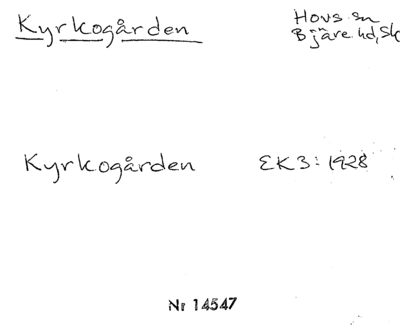 Kyrkogården
Hovs sn
Bjäre hd, Sk
Kyrkogården EK3: 1928
Nr 14547